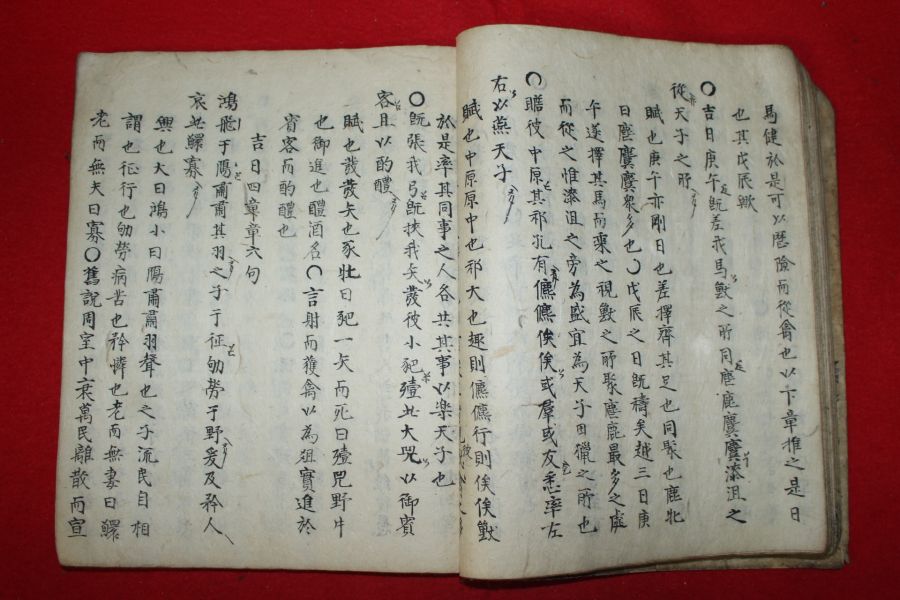 馬健於是可以歷險而從禽也以下章推之是日
也其戊辰歟
○吉日庚午旣差我馬獸之所同麀鹿麌麌漆沮之
從天子之所
賦也庚午亦剛日也差擇齊其足也同聚也鹿牝
曰麀麌麌衆多也○戊辰之日旣禱矣越三日庚
午遂擇其馬而乘之視獸之所聚麀鹿最多之處
而從之惟漆沮之旁為盛宜為天子田獵之所也
○瞻彼中原其祁孔有儦儦俟俟或羣或友悉率左
右以燕天子
賦也中原原中也祁大也趣則儦儦行則俟俟獸
於是率其同事之人各共其事以樂天子也
○旣張我弓旣挾我矢發彼小豝殪此大兕以御賓
客且以酌醴
賦也發發矢也豕牝曰豝一矢而死曰殪兕野牛
也御進也醴酒名○言射而獲禽以為俎實進於
賓客而酌醴也
吉日四章章六句
鴻飛于陽肅肅其羽之子于征劬勞于野爰及矜人
哀此鰥寡
興也大曰鴻小曰陽肅肅羽聲也之子流民自相
謂也征行也劬勞病苦也矜憐也老而無妻曰鰥
老而無夫曰寡○舊說周室中衰萬民離散而宣